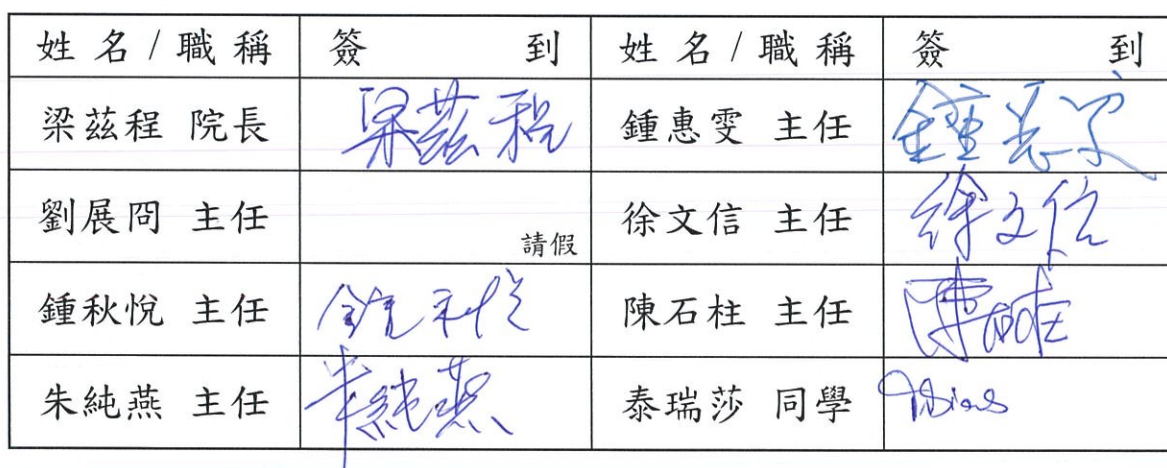 姓名/職稱 簽到 姓名/職稱 簽到
梁茲程 院長 梁茲程 鍾惠雯 主任 鍾惠雯
劉展冏 主任 請假 徐文信 主任 徐文信
鍾秋悅 主任 鍾秋悅 陳石柱 主任 陳石柱
朱純燕 主任 朱純燕 泰瑞莎 同學